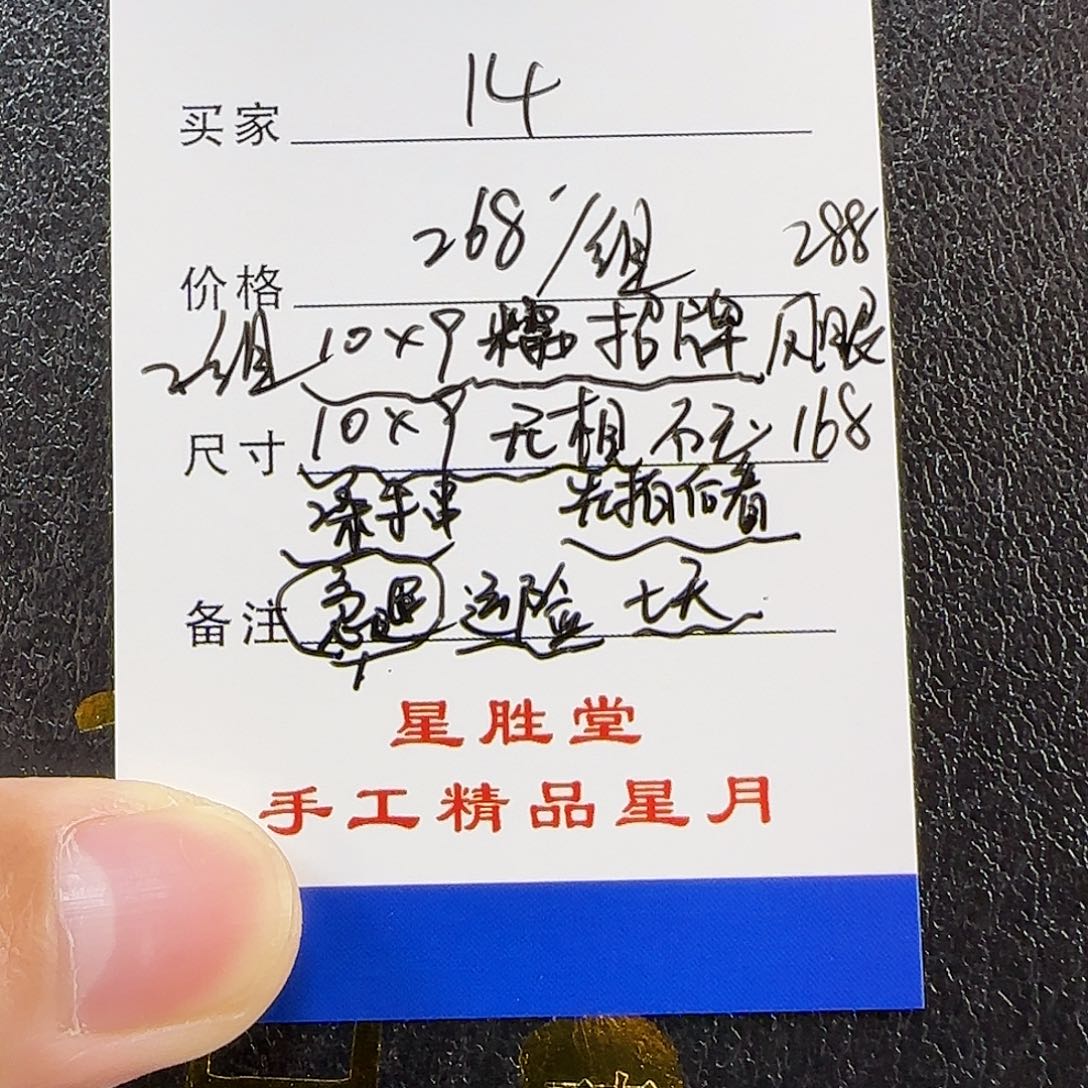 买家 14
268/组 288
价格
2组 10×9 精品 招牌 凤眼
尺寸 10×9 无相 不玄 168
添手串 先拍后看
备注 急速 运险 七天
星胜堂
手工精品星月